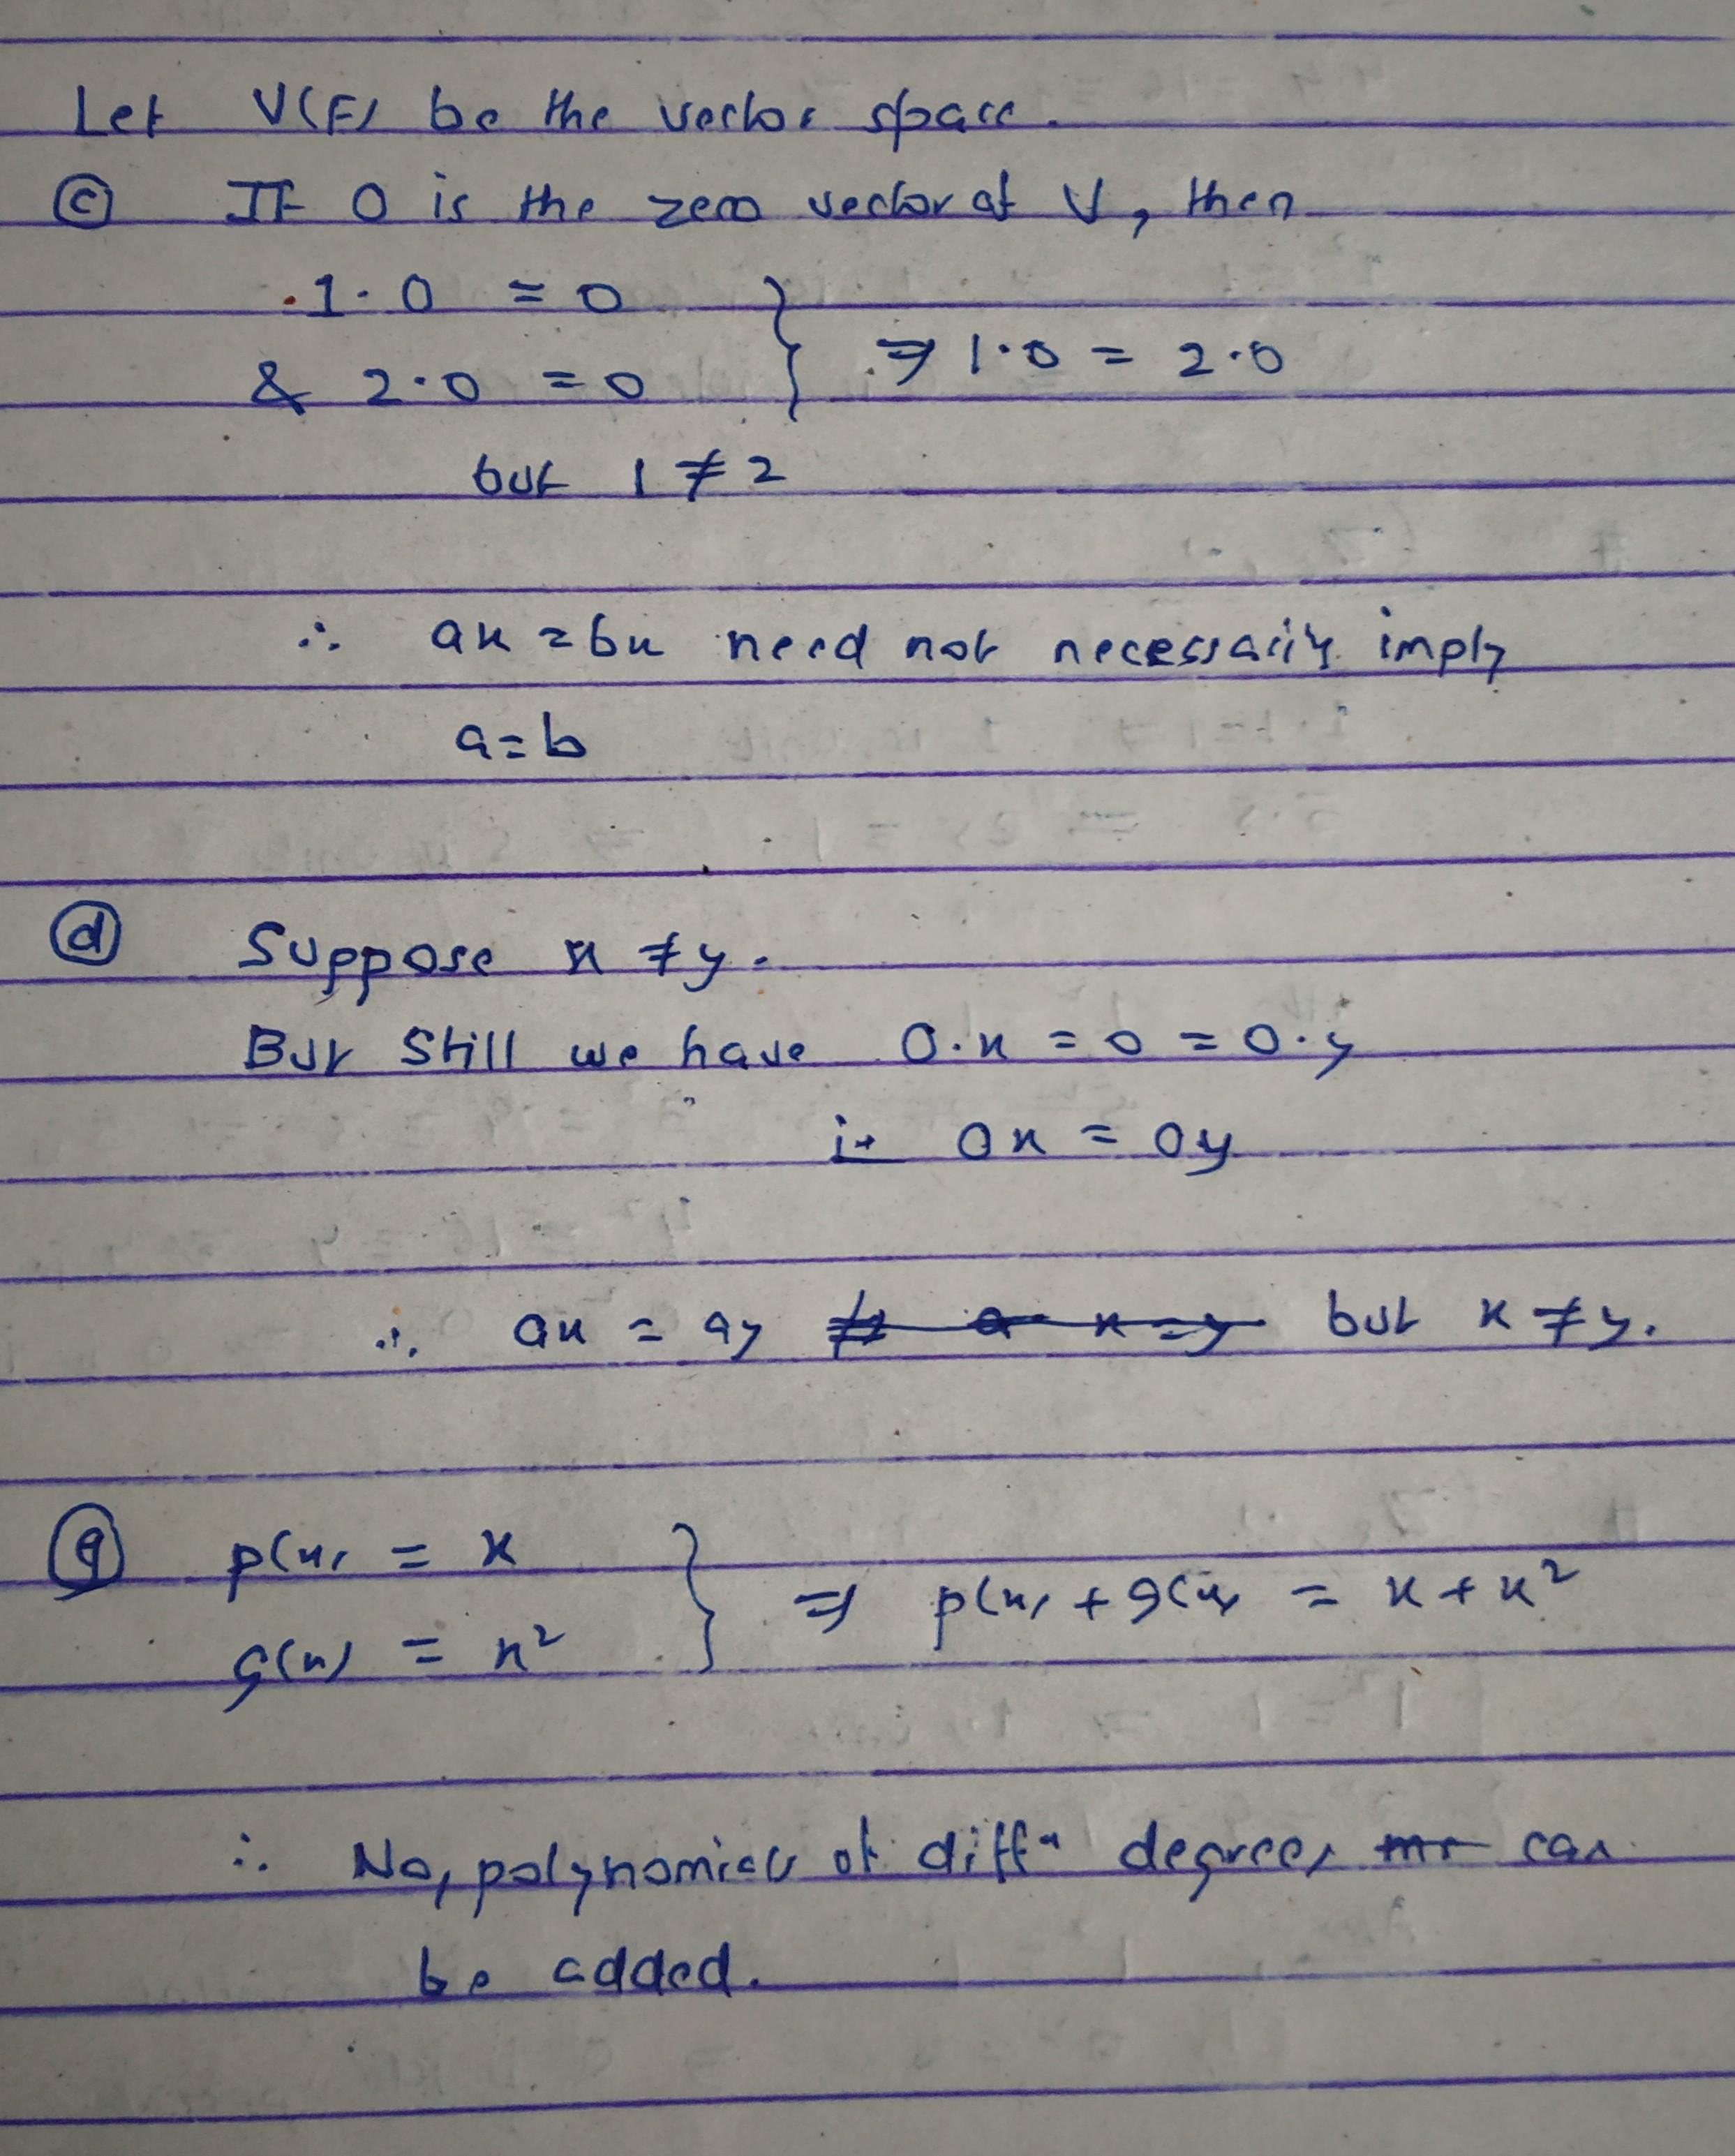 Let V(F) be the vector space.
ⓒ If 0 is the zero vector of V, then
1·0 = 0
& 2·0 = 0 } ⇒ 1·0 = 2·0
but 1 ≠ 2
∴ ax = bx need not necessarily imply
a=b
ⓓ Suppose x ≠ y.
But still we have 0·x = 0 = 0·y
ie 0x = 0y
∴ ax = ay but x ≠ y.
ⓖ p(x) = x
g(x) = x² } ⇒ p(x) + g(x) = x + x²
∴ No, polynomials of diffn degrees can
be added.